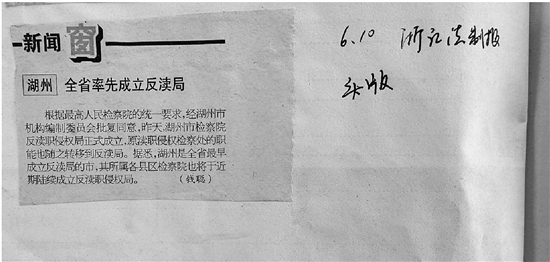 新闻窗
湖州 全省率先成立反渎局
根据最高人民检察院的统一要求,经湖州市
机构编制委员会批复同意,昨天,湖州市检察院
反渎职侵权局正式成立,原渎职侵权检察处的职
能也随之转移到反渎局。据悉,湖州是全省最早
成立反渎局的市,其所属各县区检察院也将于近
期陆续成立反渎职侵权局。 (钱聪)
6.10 浙江法制报
头版